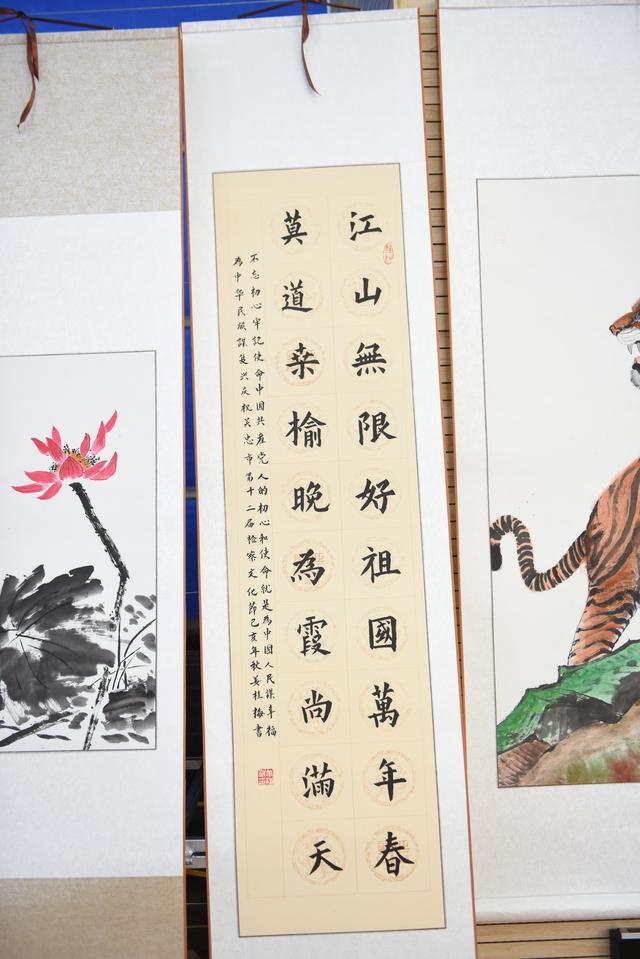 江山無限好祖國萬年春
莫道桑榆晚為霞尚滿天
不忘初心牢記使命中国共産党人的初心和使命就是為中国人民謀幸福
為中华民族謀复兴庆祝吴忠市第十二届检察文化節己亥年秋姜桂梅書